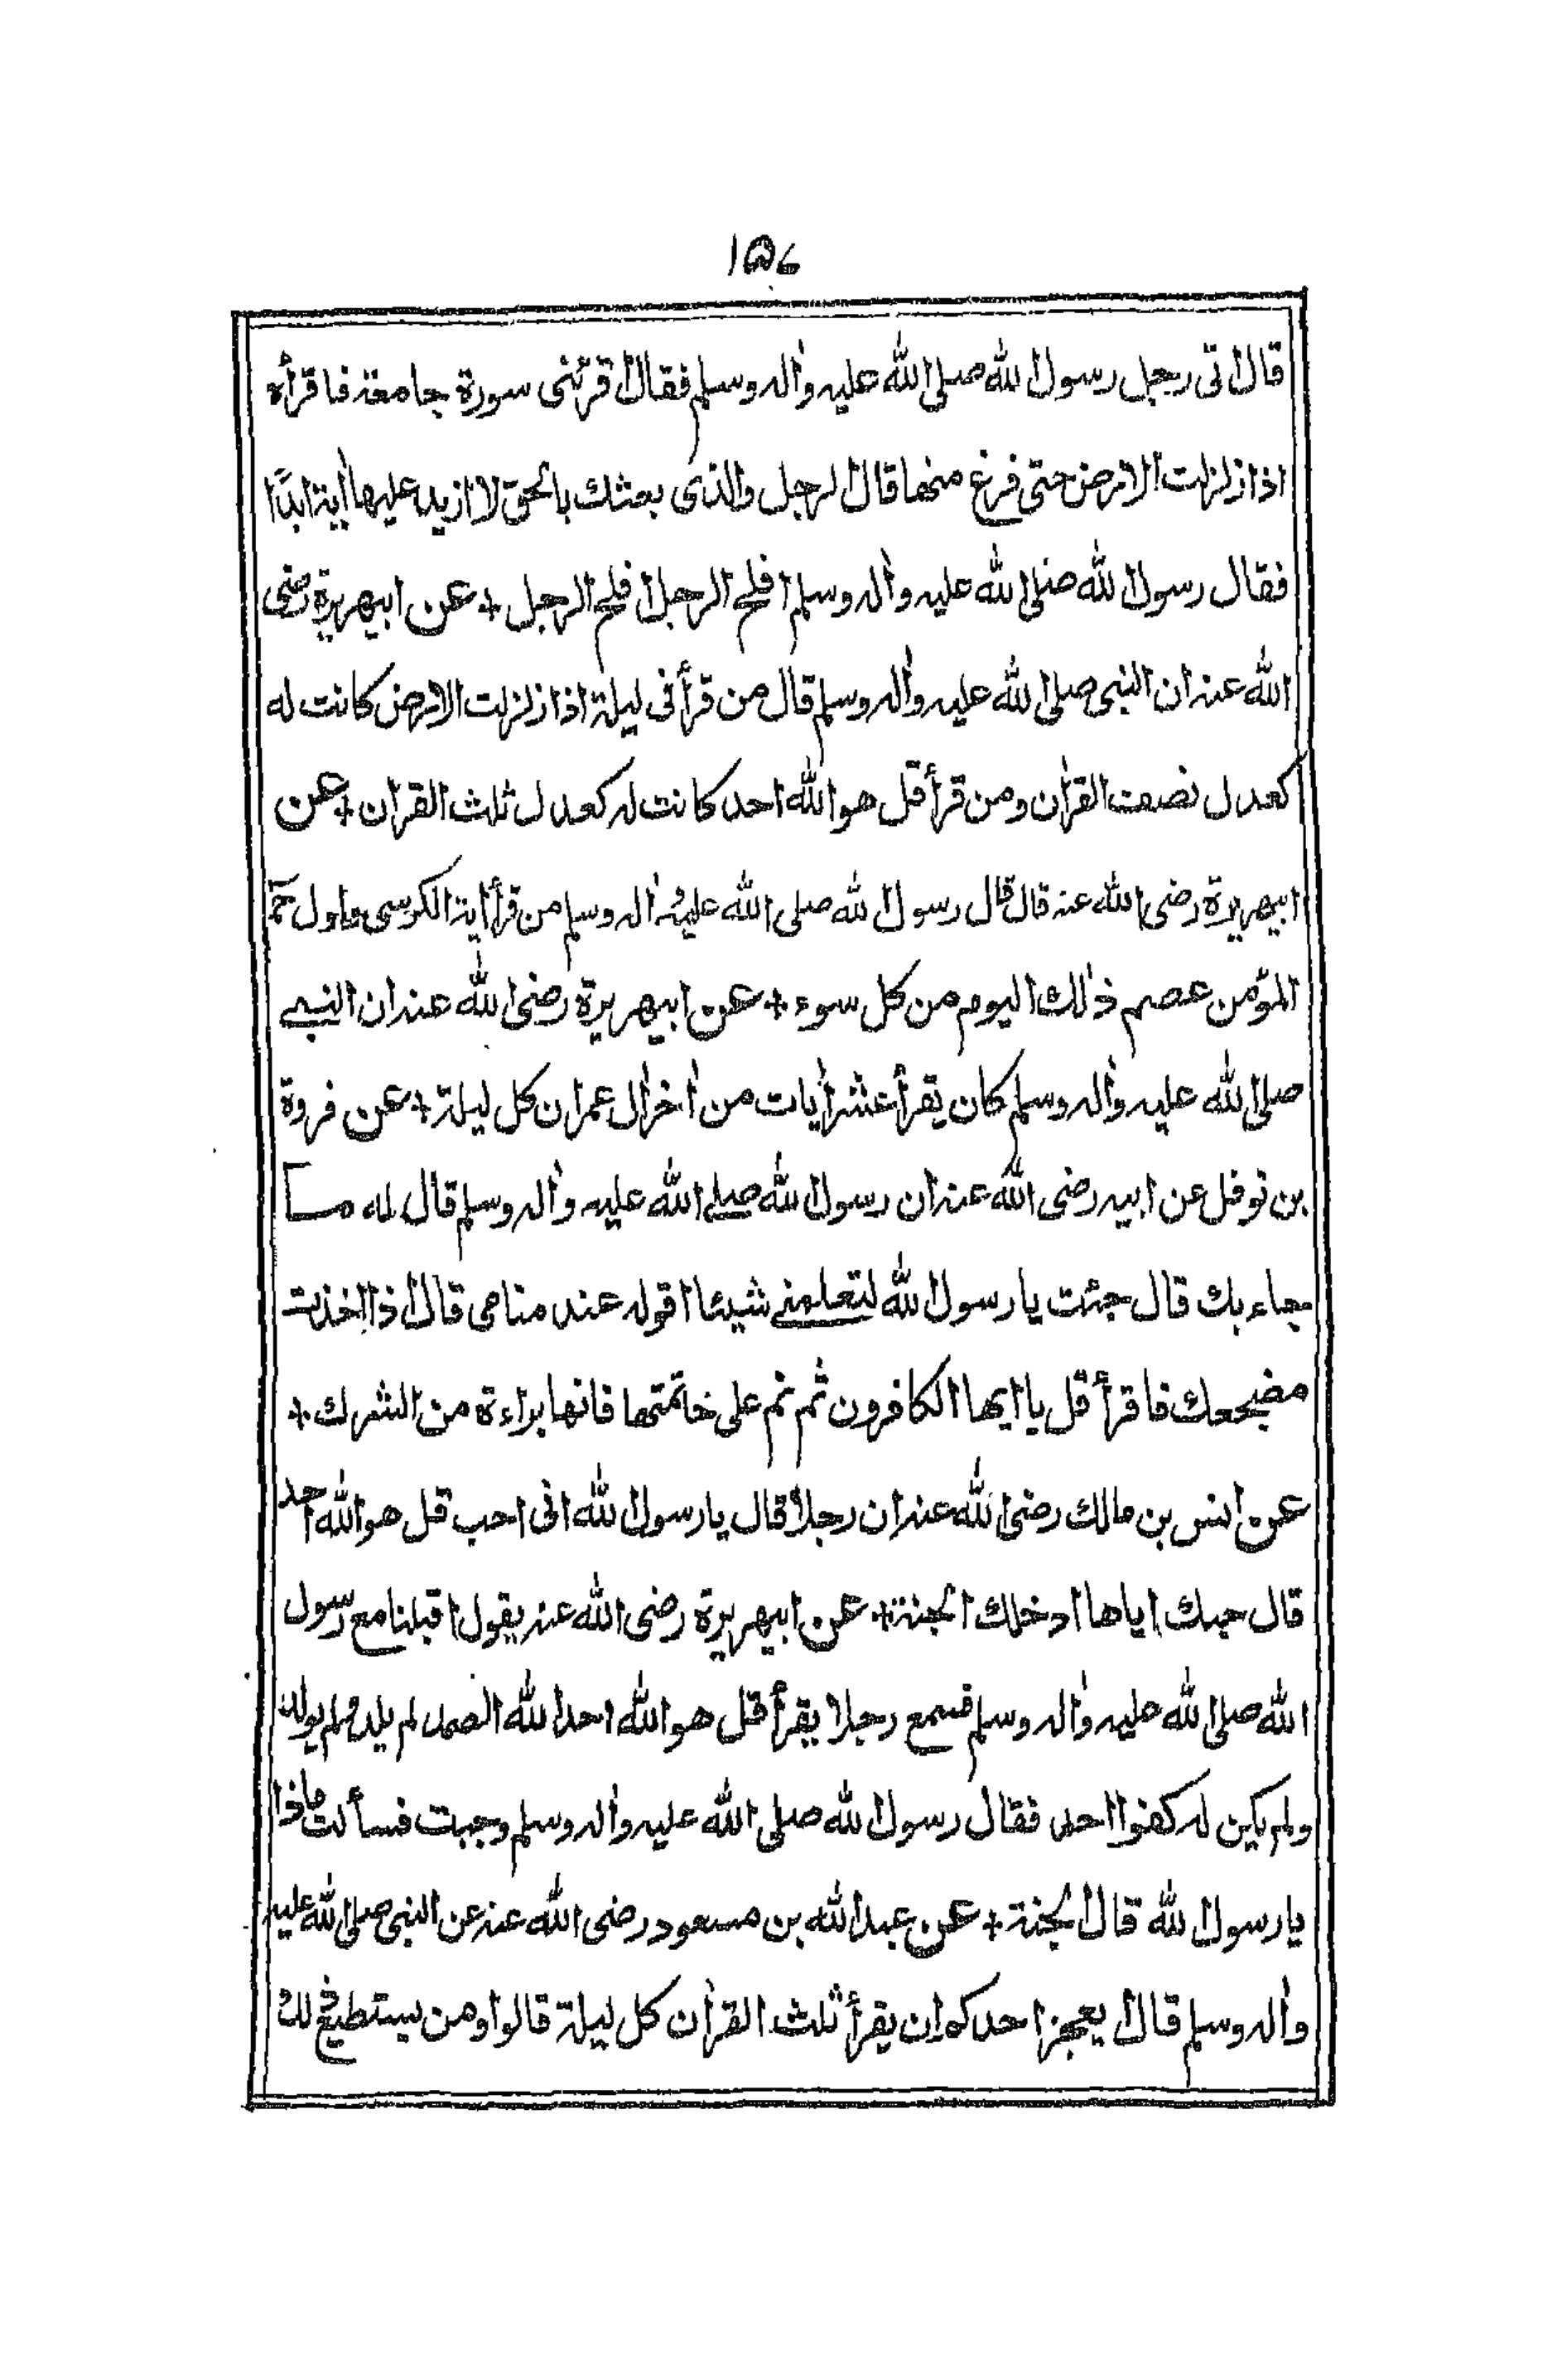 ١٥٦
قال اتى رجل رسول الله صلى الله عليه واٰله وسلم فقال اقرئنى سورة جامعة فاقرأه
اذا زلزلت الارض حتى فرغ منها قال الرجل والذى بعثك بالحق لا ازيد عليها اٰية ابدًا
فقال رسول الله صلى الله عليه واٰله وسلم افلح الرجل افلح الرجل + عن ابيهريرة رضى
الله عنه ان النبى صلى الله عليه واٰله وسلم قال من قرأ فى ليلة اذا زلزلت الارض كانت له
كعدل نصف القراٰن ومن قرأ قل هو الله احد كانت له كعدل ثلث القراٰن + عن
ابيهريرة رضى الله عنه قال قال رسول الله صلى الله عليه واٰله وسلم من قرأ اية الكرسى واول حمٓ
المؤمن عصم ذٰلك اليوم من كل سوء + عن ابيهريرة رضى الله عنه ان النبى
صلى الله عليه واٰله وسلم كان يقرأ عشر اٰيات من اٰخر اٰل عمران كل ليلة + عن فروة
بن نوفل عن ابيه رضى الله عنه ان رسول الله صلى الله عليه واٰله وسلم قال له ما
جاء بك قال جئت يا رسول الله لتعلمنى شيئا اقوله عند منامى قال اذا اخذت
مضجعك فاقرأ قل يا ايها الكافرون ثم نم على خاتمتها فانها براءة من الشرك +
عن انس بن مالك رضى الله عنه ان رجلا قال يا رسول الله انى احب قل هو الله احد
قال حبك اياها ادخلك الجنة + عن ابيهريرة رضى الله عنه يقول اقبلنا مع رسول
الله صلى الله عليه واٰله وسلم فسمع رجلا يقرأ قل هو الله احد الله الصمد لم يلد ولم يولد
ولم يكن له كفوا احد فقال رسول الله صلى الله عليه واٰله وسلم وجبت فسألت ماذا
يا رسول الله قال الجنة + عن عبد الله بن مسعود رضى الله عنه عن النبى صلى الله عليه
واٰله وسلم قال ايعجز احدكم ان يقرأ ثلث القراٰن كل ليلة قالوا ومن يستطيع ذلك